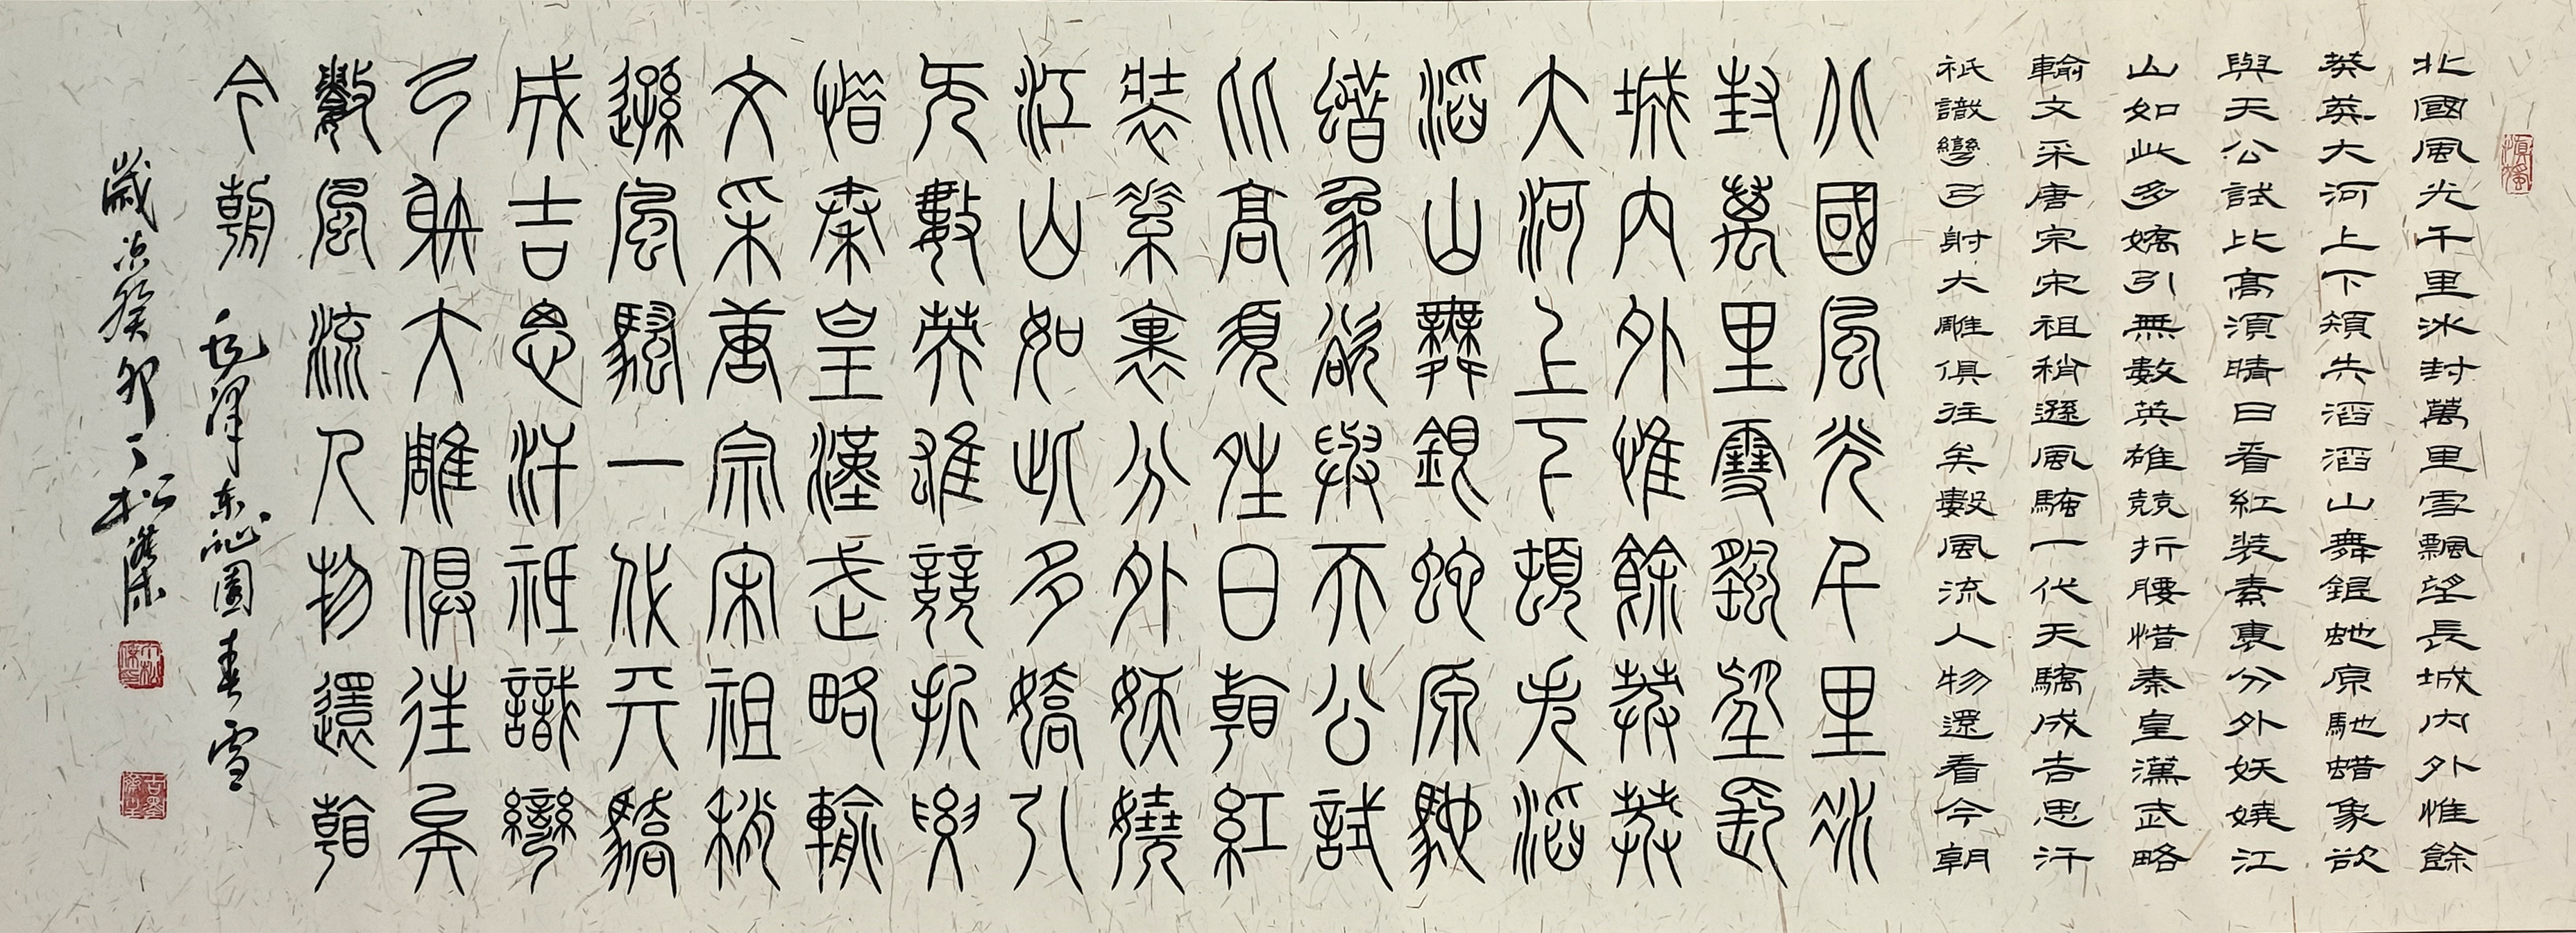 北國風光千里冰封萬里雪飄望長城內外惟餘
莽莽大河上下頓失滔滔山舞銀蛇原馳蜡象欲
與天公試比高須晴日看紅裝素裹分外妖嬈江
山如此多嬌引無數英雄競折腰惜秦皇漢武略
輸文采唐宗宋祖稍遜風騷一代天驕成吉思汗
祇識彎弓射大雕俱往矣數風流人物還看今朝
北國風光千里冰
封萬里雪飄望長
城內外惟餘莽莽
大河上下頓失滔
滔山舞銀蛇原馳
蜡象欲與天公試
比高須晴日看紅
裝素裹分外妖嬈
江山如此多嬌引
無數英雄競折腰
惜秦皇漢武略輸
文采唐宗宋祖稍
遜風騷一代天驕
成吉思汗祇識彎
弓射大雕俱往矣
數風流人物還看
今朝 毛澤東沁園春雪
歲次癸卯